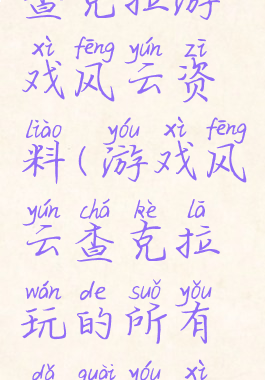 查克拉游
xì fēng yún zī
戏风云资
liào yóu xì fēng
料(游戏风
yún chá kè lā
云查克拉
wán de suǒ yǒu
玩的所有
dǎ guài yóu xì